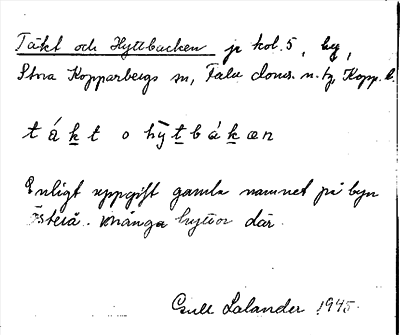 Täkt och Hyttbacken jr kol. 5, by,
Stora Kopparbergs sn, Falu doms. n. tg, Kopp. l.
t á k t o hȳ t b á k æ n
Enligt uppgift gamla namnet på byn
Österå. Många hyttor där.
Gull Lalander 1945.